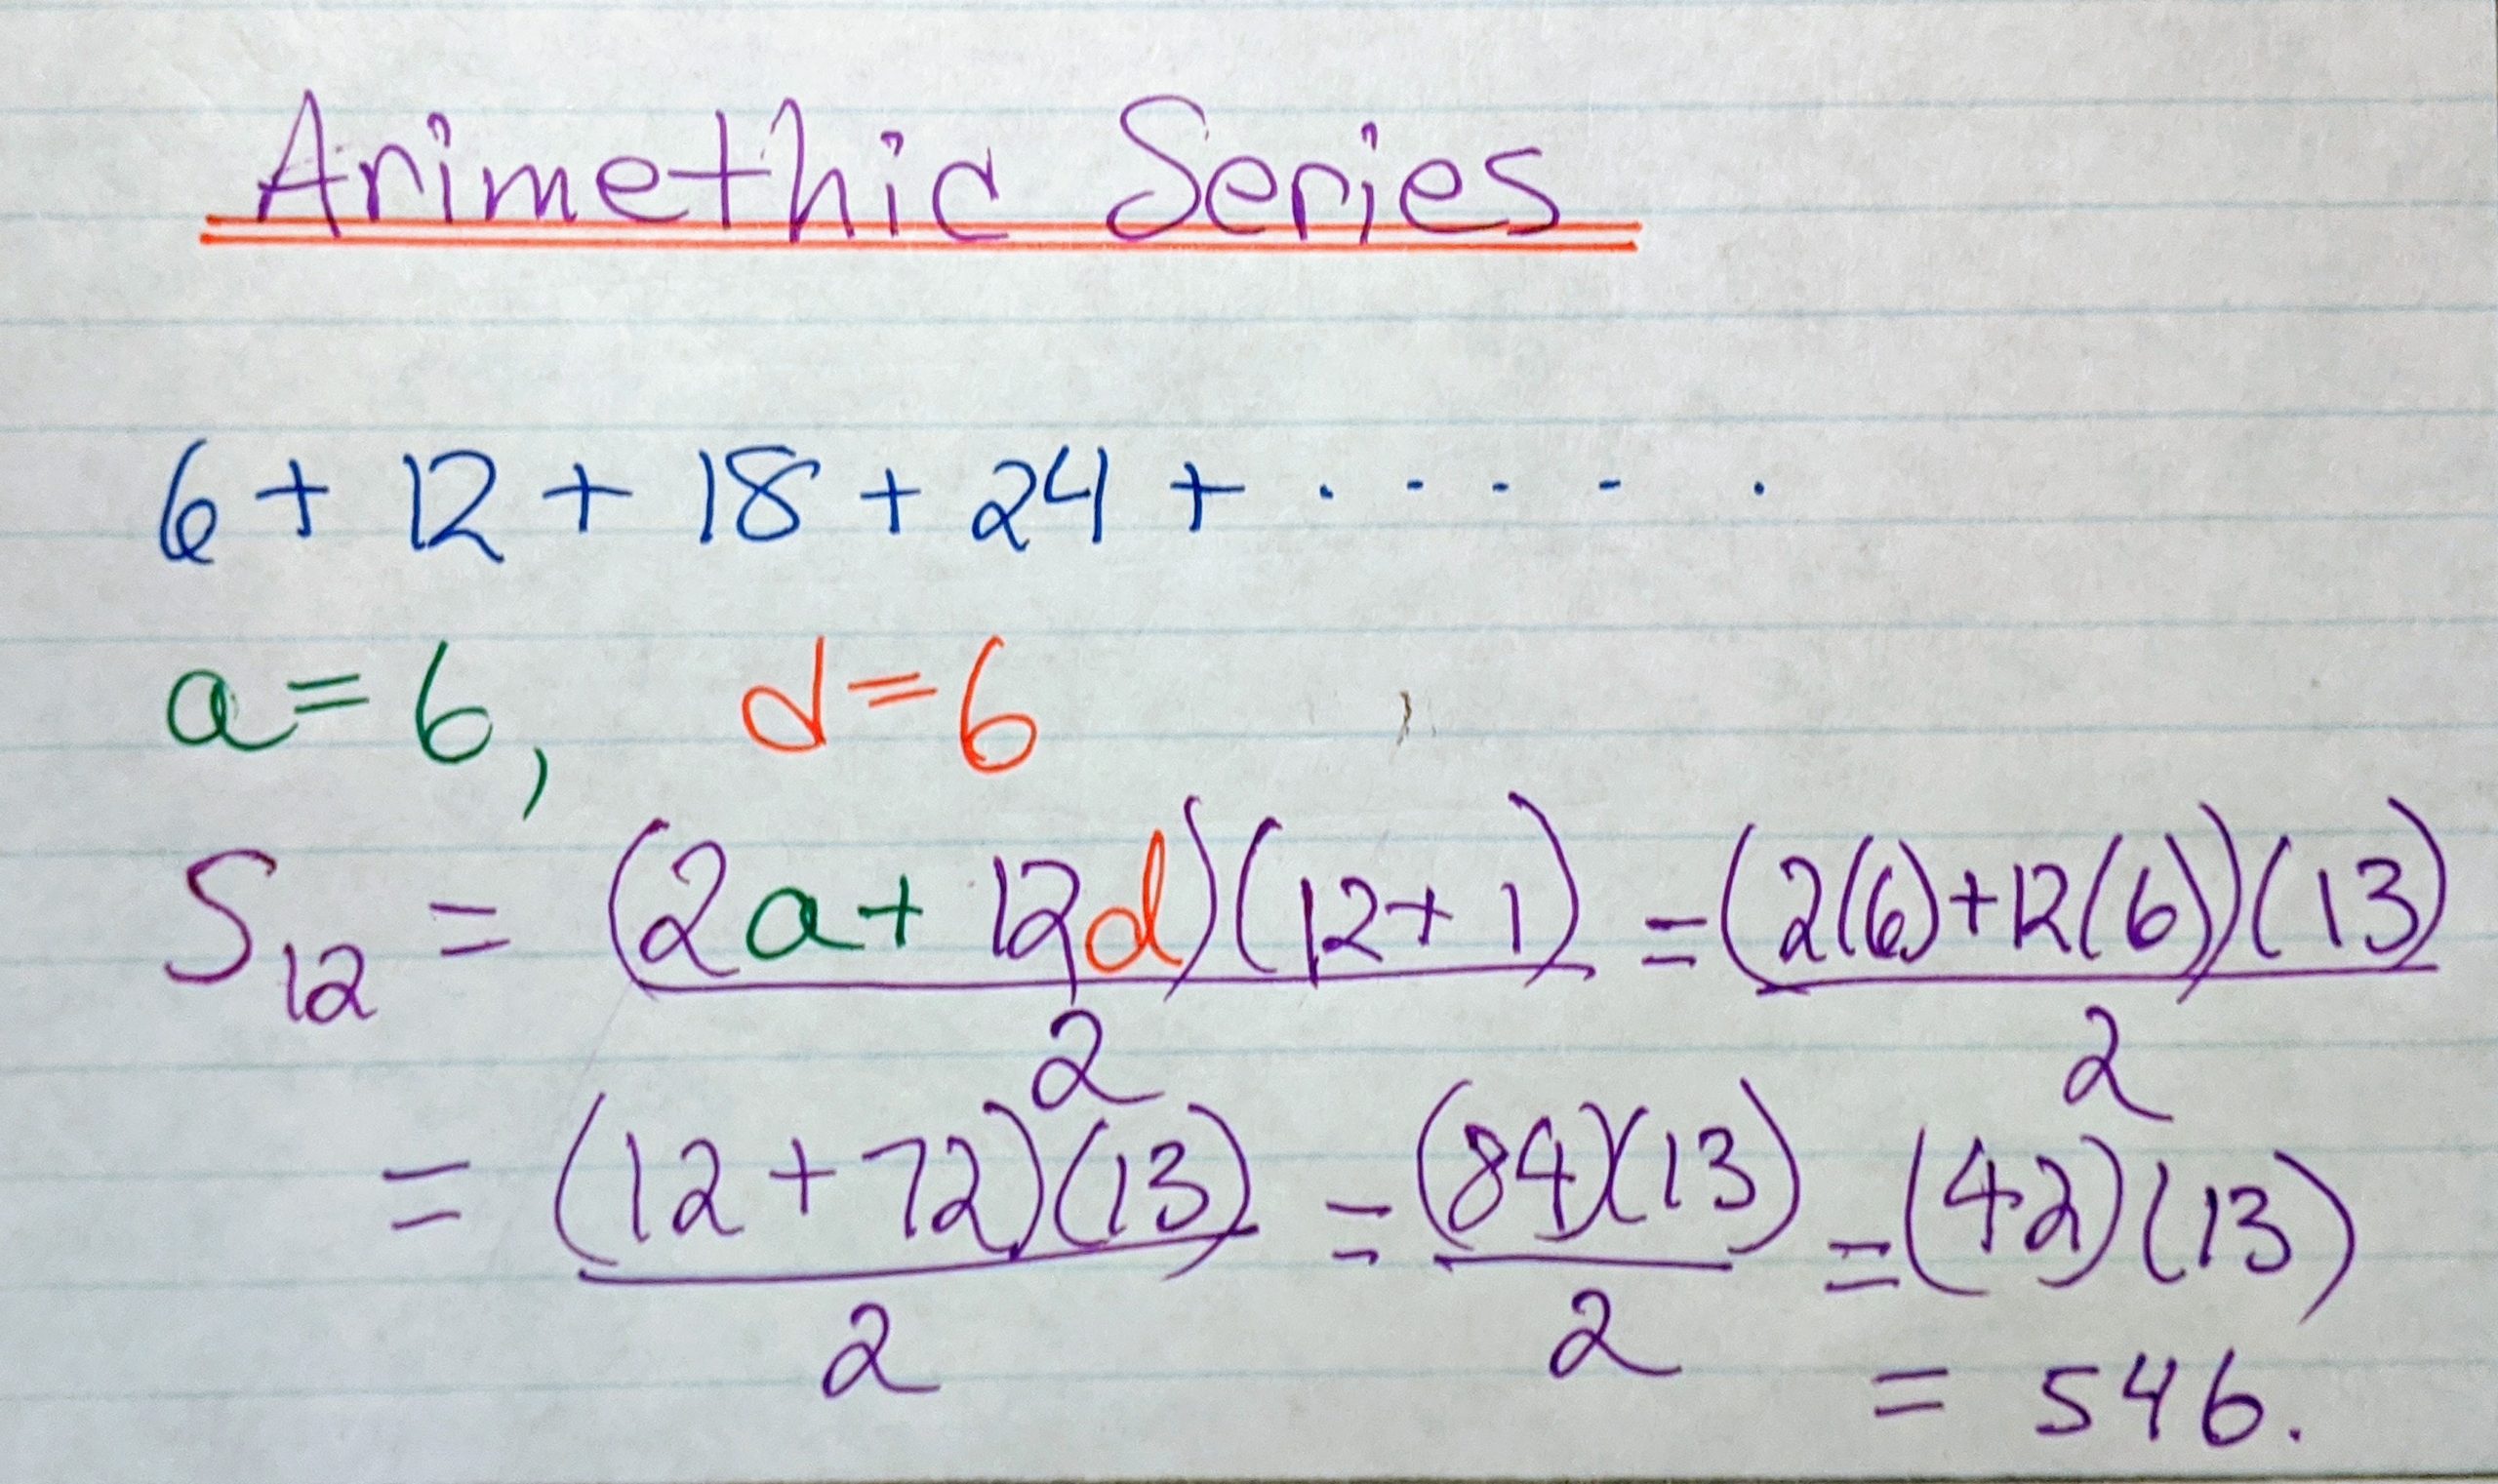 Arimethic Series
6 + 12 + 18 + 24 + . . . . .
a = 6, d = 6
S₁₂ = (2a + 12d)(12 + 1)/2 = (2(6) + 12(6))(13)/2
= (12 + 72)(13)/2 = (84)(13)/2 = (42)(13)
= 546.